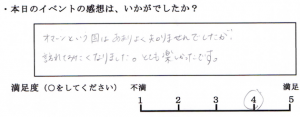 ・本日のイベントの感想は、いかがでしたか？
オマーンという国はあまりよく知りませんでしたが、
訪れてみたくなりました。とても楽しかったです。
満足度（○をしてください） 不満 満足
1 2 3 4 5